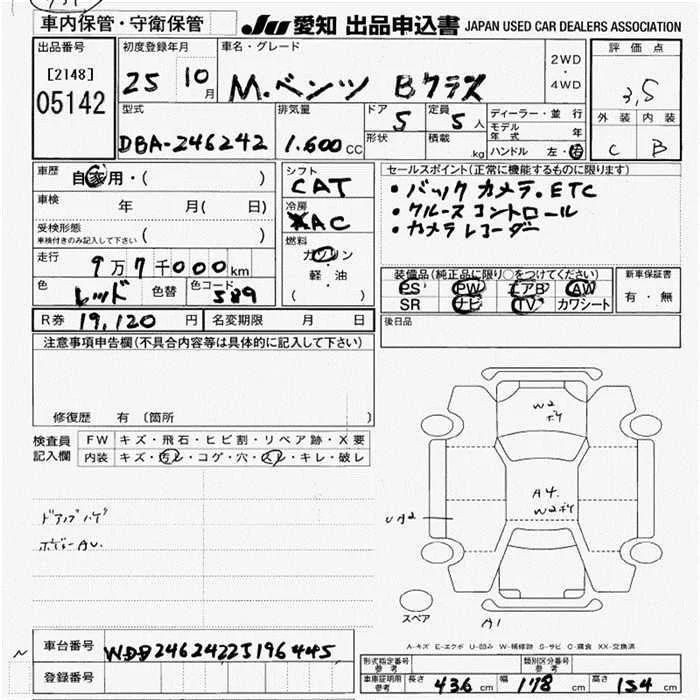 車内保管・守衛保管
JU 愛知 出品申込書 JAPAN USED CAR DEALERS ASSOCIATION
出品番号
[2148]
05142
初度登録年月
25 10月
車名・グレード
M.ベンツ Bクラス
2WD
・
4WD
評価点
3.5
外装 内装
C B
型式
DBA-246242
排気量
1.600cc
ドア
5
形状
定員
5人
積載
.kg
ディーラー・並行
モデル年式 年
ハンドル 左・右
車歴
自家用・( )
車検
年 月( 日)
受検形態
車検付きのみ記入して下さい ( )
走行
9万7千000km
色
レッド
色替
色コード
589
シフト
CAT
冷房
AC
燃料
ガソリン
軽・油
( )
セールスポイント(正常に機能するものに限ります)
・バックカメラ.ETC
・クルーズコントロール
・カメラレコーダー
装備品(純正品に限り○をつけてください)
PS PW エアB AW
SR ナビ TV カワシート
新車保証書
有・無
R券 19,120円
名変期限 月 日
後日品
注意事項申告欄(不具合内容等は具体的に記入して下さい)
修復歴 有〔箇所 〕
検査員記入欄
FW キズ・飛石・ヒビ割・リペア跡・X要
内装 キズ・汚レ・コゲ・穴・スレ・キレ・破レ
ボディーAU.
W2
A4.
W2
UA2
A1
スペア
A-キズ E-エクボ U-凹み W-補修跡 S-サビ C-腐食 XX-交換済
車台番号
WDD2462422J196445
登録番号
形式指定番号 参考
類別区分番号 参考
車庫証明用参考 長さ 436 幅 178 高さ 154